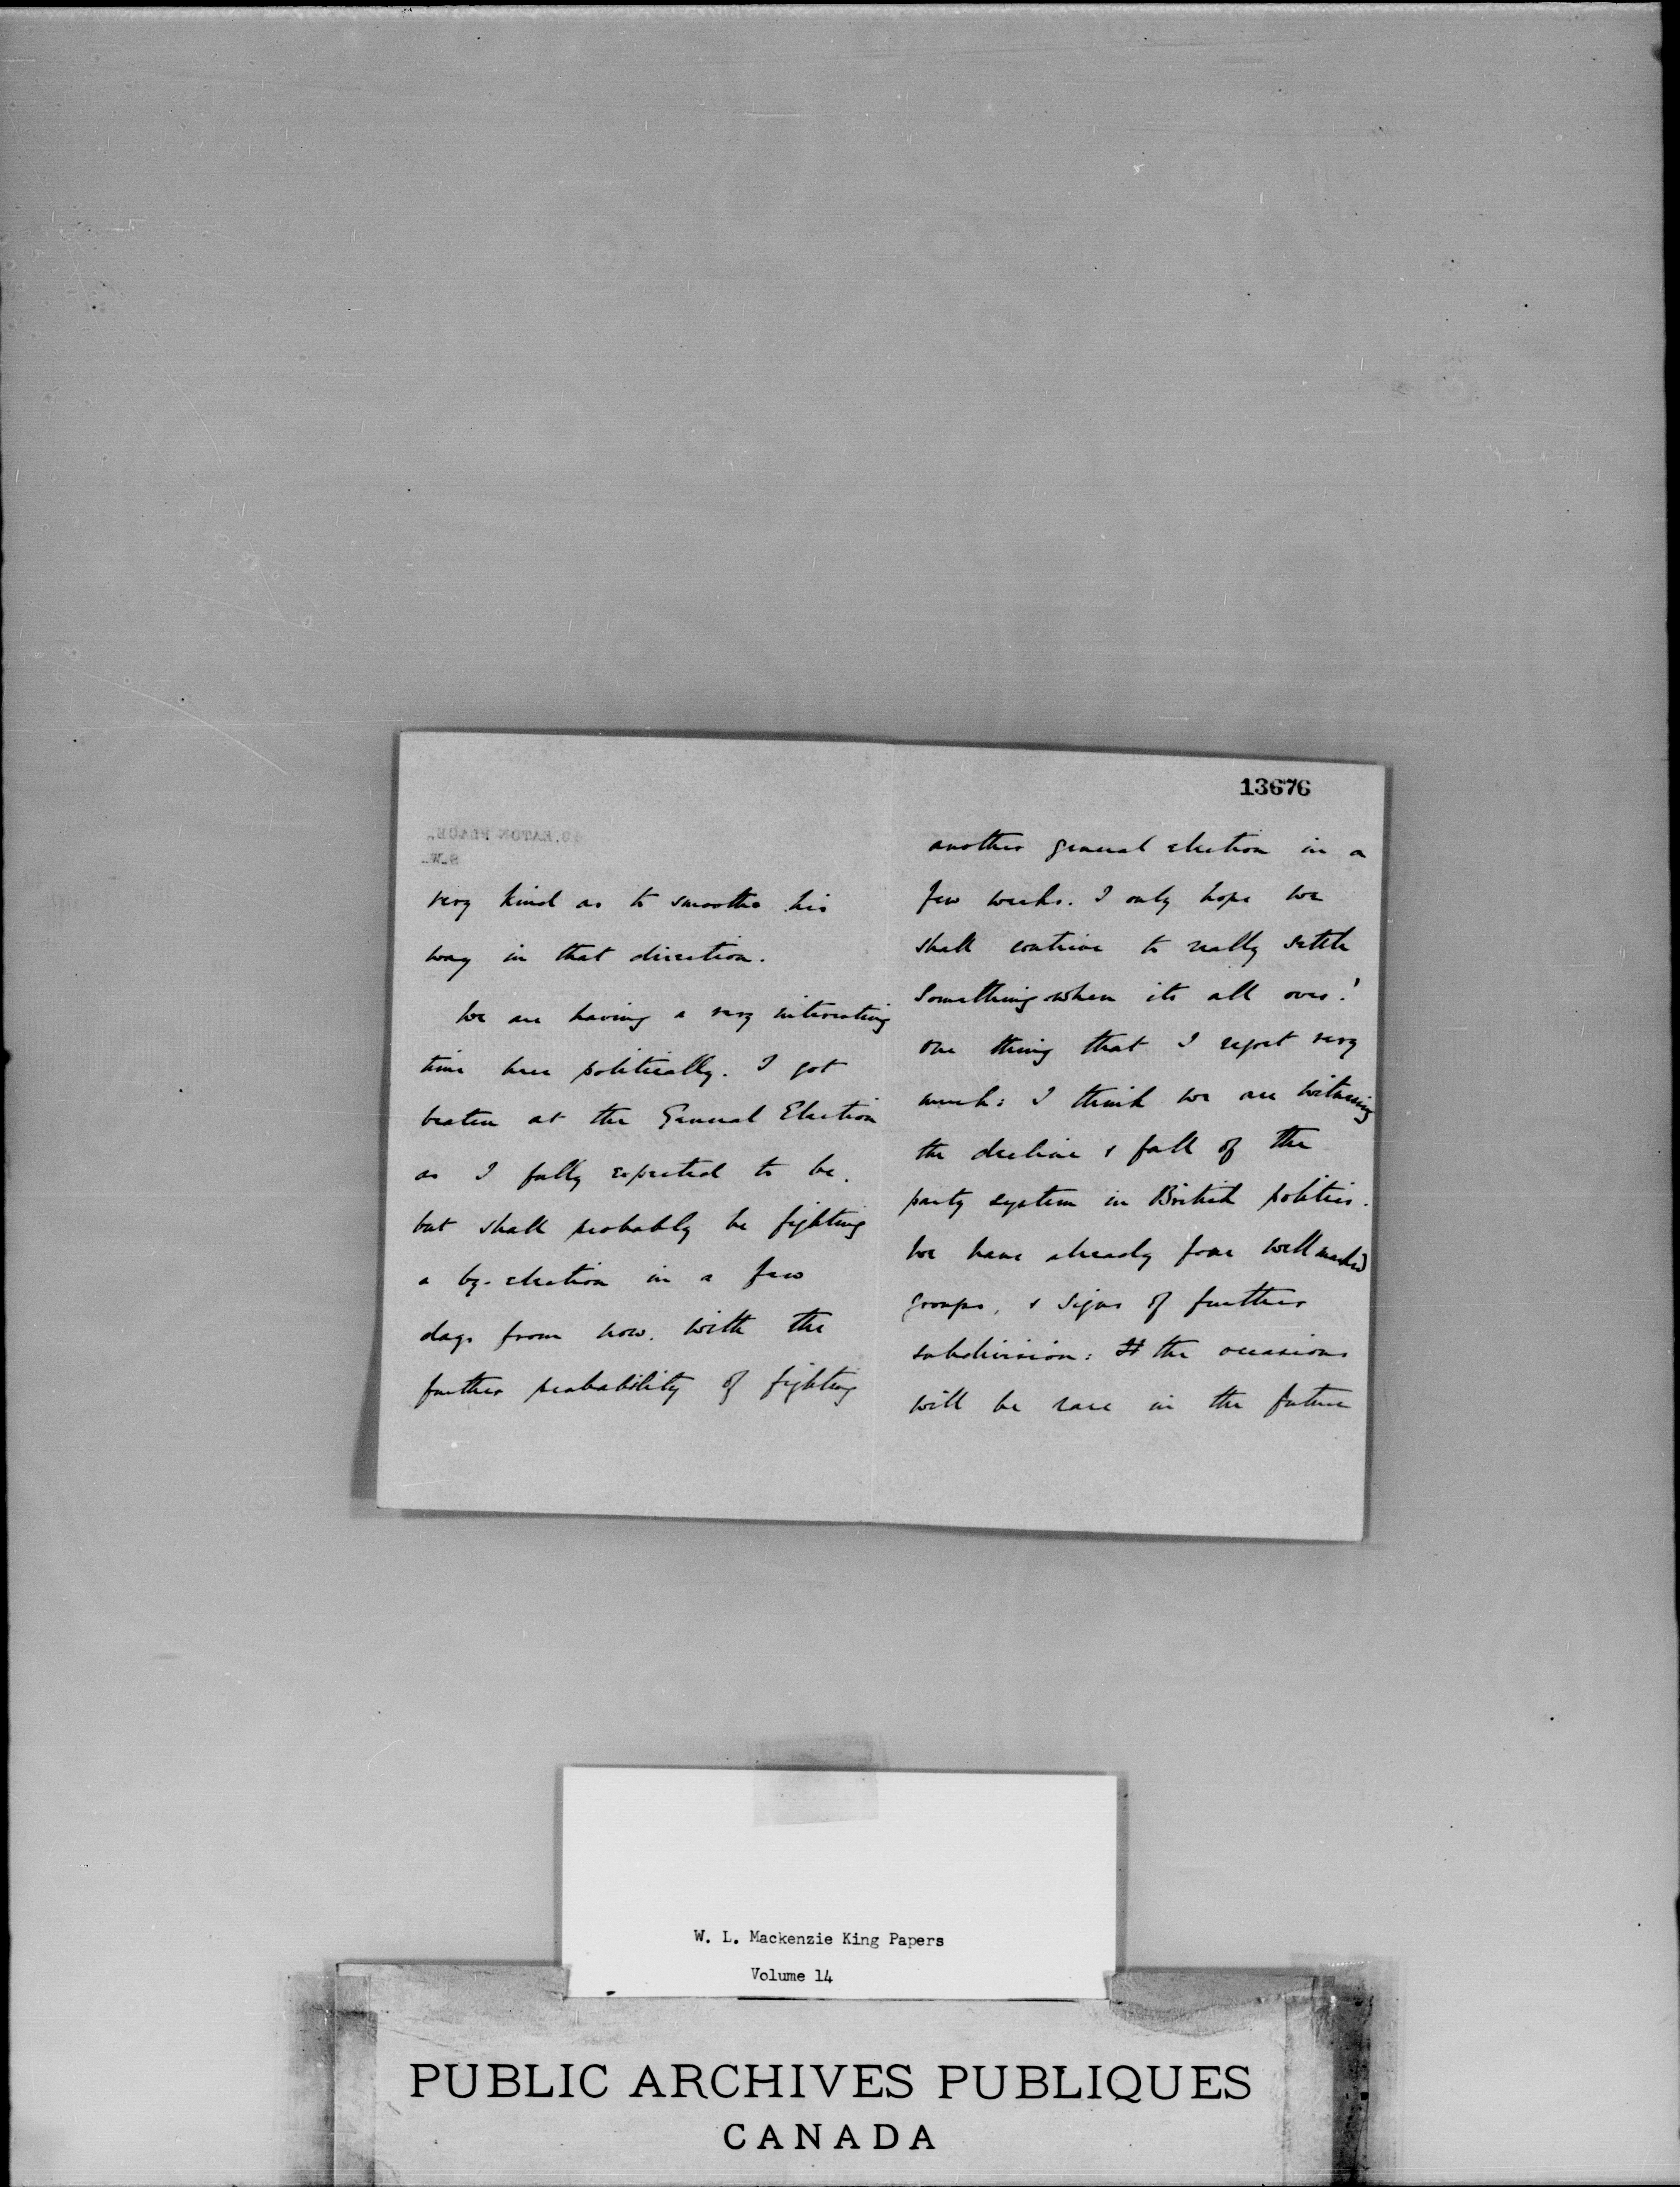 13676
very kind as to smoothe his
way in that direction.
We are having a very interesting
time here politically. I got
beaten at the General Election
as I fully expected to be.
but shall probably be fighting
a by-election in a few
days from now. with the
further probability of fighting
another general election in a
few weeks. I only hope we
shall contrive to really settle
something when its all over!
One thing that I regret very
much: I think we are witnessing
the decline & fall of the
party system in British politics.
We have already four well marked
groups, & signs of further
subdivision: the occasions
will be rare in the future
W. L. Mackenzie King Papers
Volume 14
PUBLIC ARCHIVES PUBLIQUES
CANADA